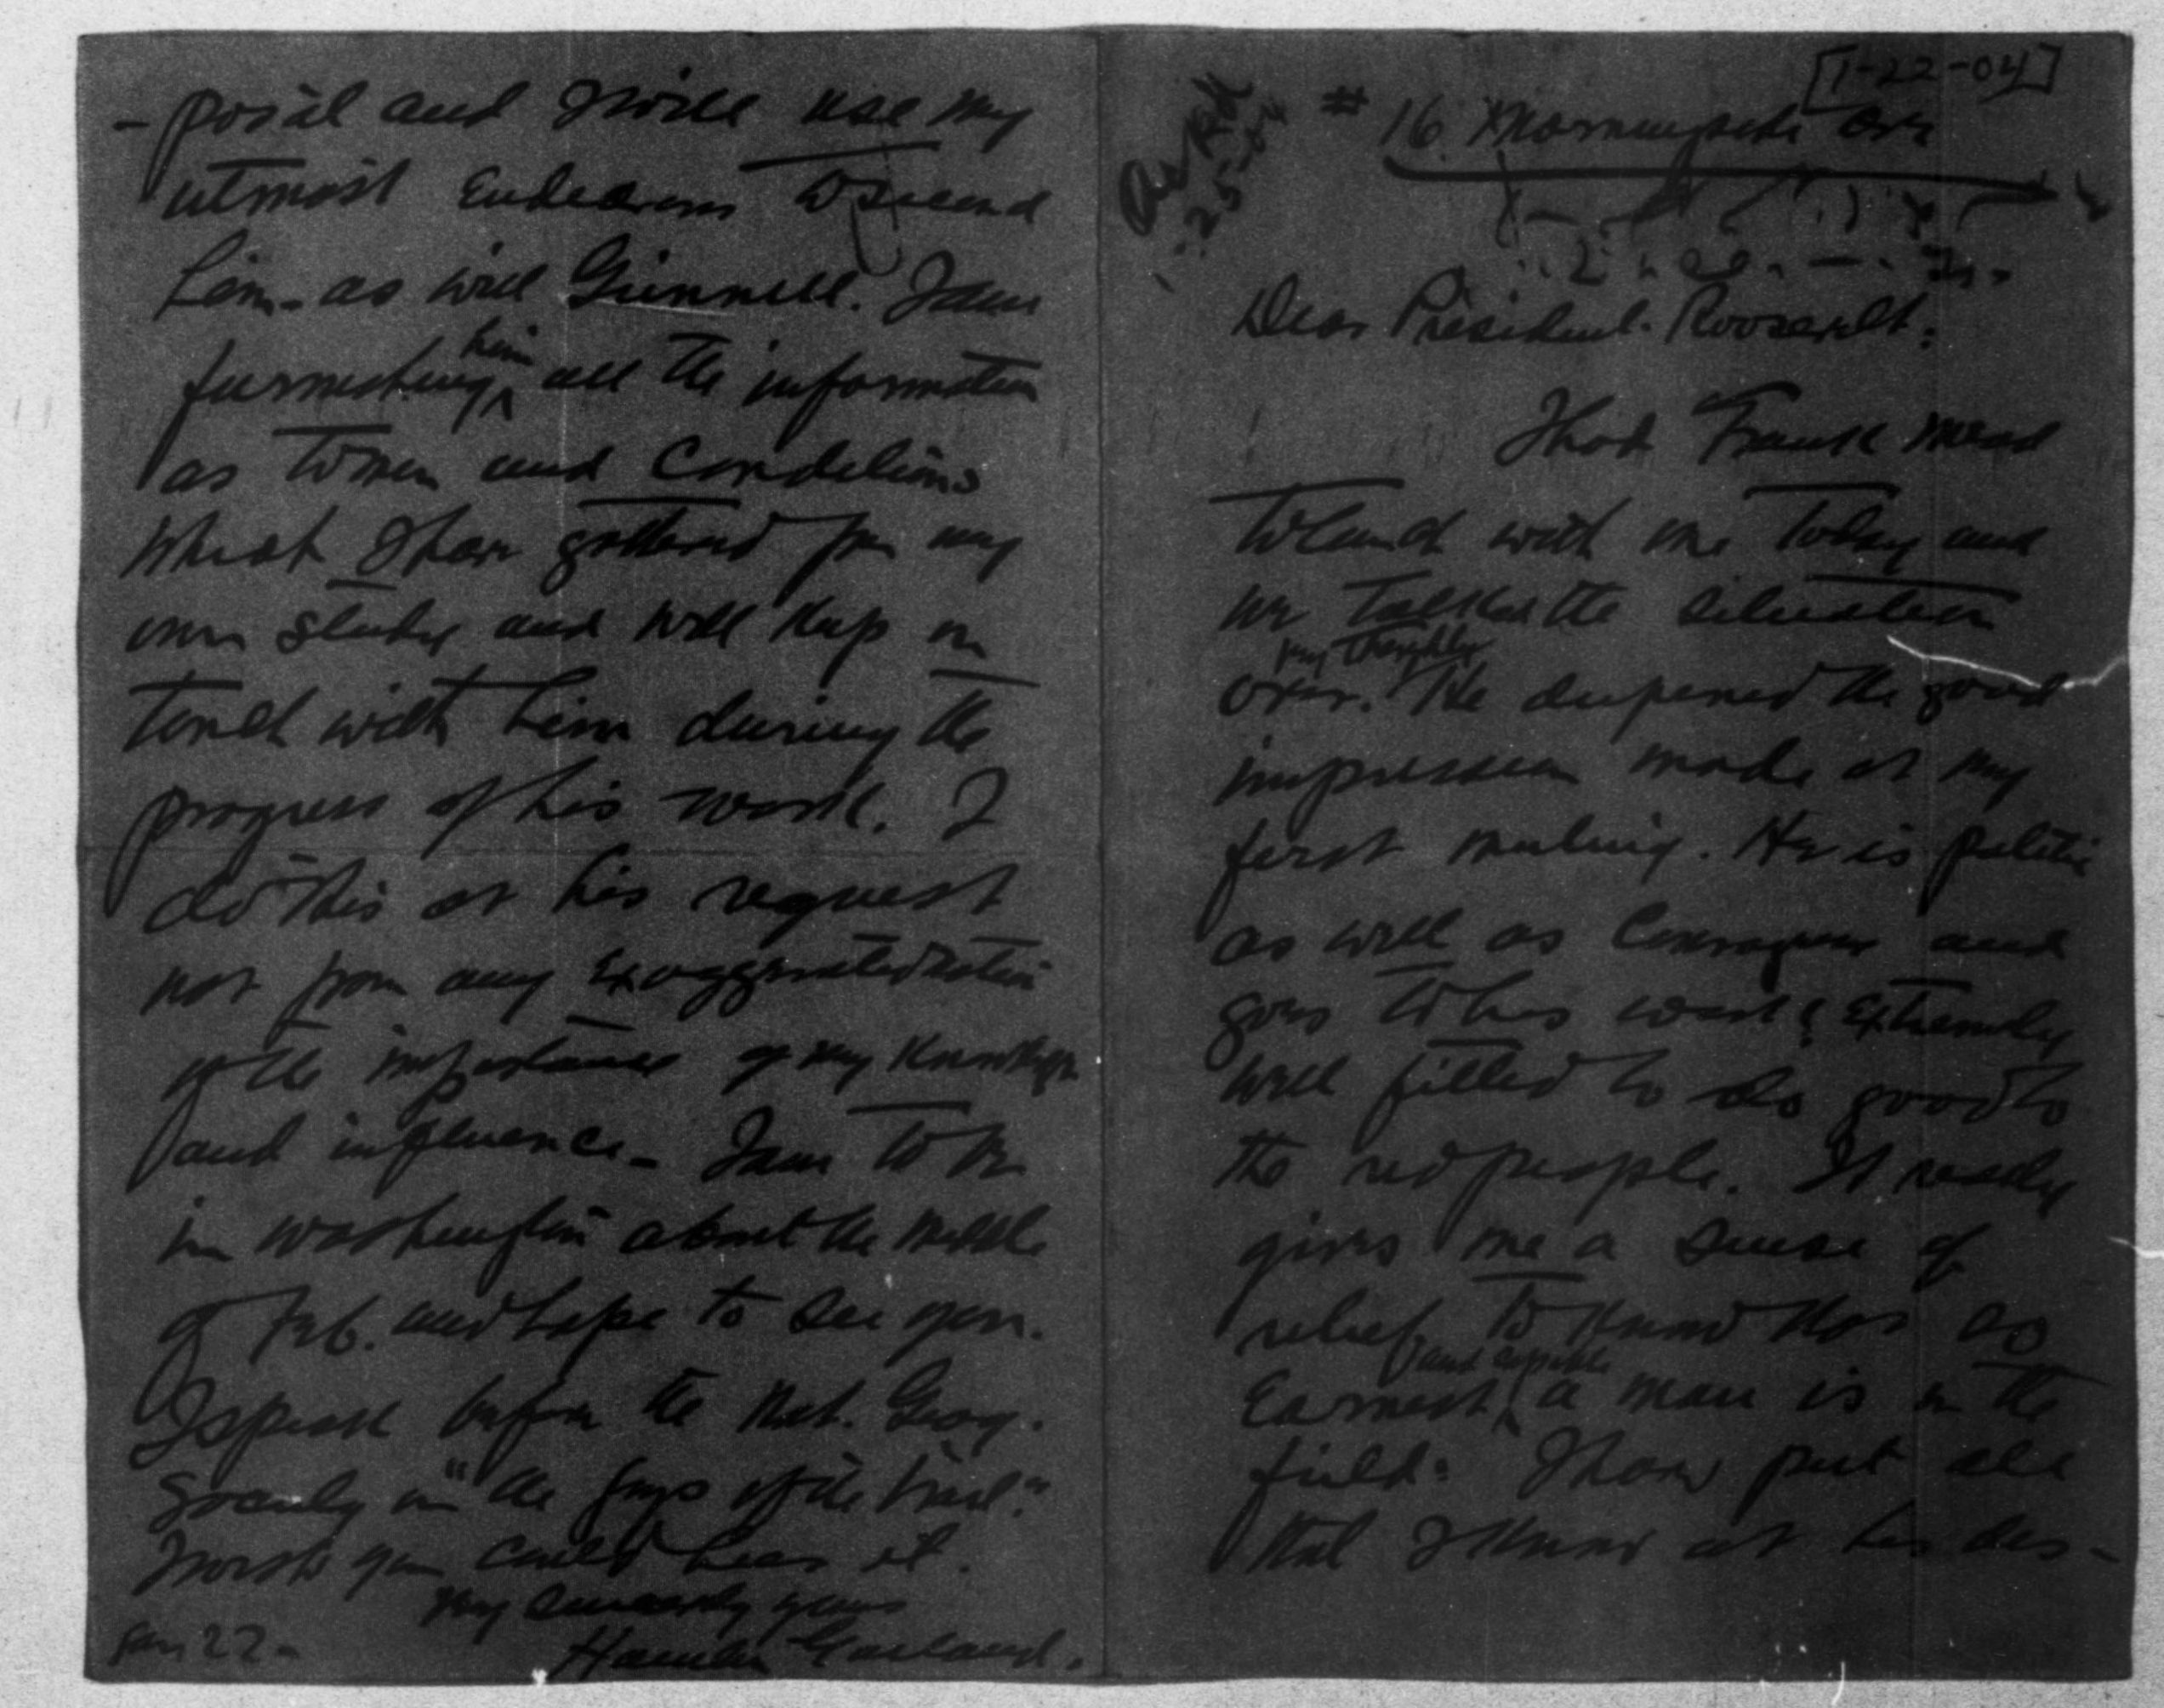 [1-22-04]
Ack'd
1-25-04
# 16. Morningside Ave
Dear President Roosevelt:
I had Frank Mead
to lunch with me today and
we talked the situation
very thoroughly
over. He deepened the good
impression made at my
first meeting. He is politic
as well as courageous and
goes to his work extremely
well fitted to do good to
the red people. It really
gives me a sense of
relief to know that so
and capable
earnest ^ a man is in the
field. I have put all
that I know at his dis-
-posal and I will use my
utmost endeavors to second
him - as will Grinnell. I am
him
furnishing ^ all the information
as to men and conditions
which I have gathered for my
own study and will keep in
touch with him during the
progress of his work. I
do this at his request
not from any exaggerated notion
of the importance of my knowledge
and influence - I am to be
in Washington about the middle
of Feb. and hope to see you.
I speak before the Nat. Geog.
Society on "the Joys of the Trail."
I wish you could hear it.
Very sincerely yours
Hamlin Garland.
Jan 22-